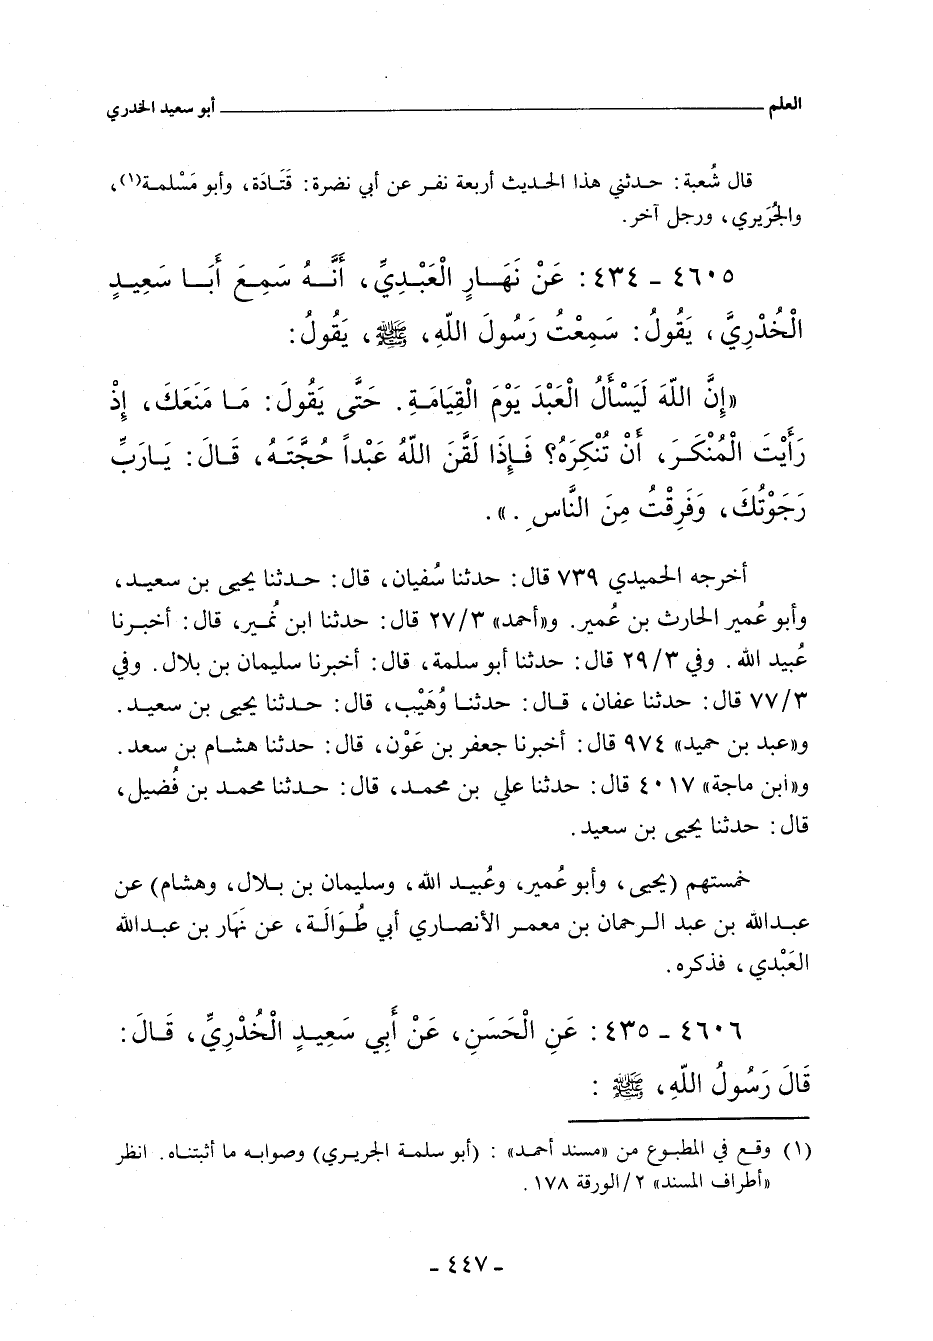 العلم ــــــــــــــــــــ أبو سعيد الخدري
قال شُعبة: حدثني هذا الحديث أربعة نفر عن أبي نضرة: قَتَادَة، وأبو مَسْلمة(١)،
والجُرَيري، ورجل آخر.
٤٦٠٥ - ٤٣٤: عَنْ نَهَـارٍ الْعَبْدِيِّ، أَنَّـهُ سَمِعَ أَبَـا سَعِيـدٍ
الْخُدْرِيَّ، يَقُولُ: سَمِعْتُ رَسُولَ اللّهِ، ﷺ، يَقُولُ:
«إِنَّ اللّهَ لَيَسْأَلُ الْعَبْدَ يَوْمَ الْقِيَامَةِ. حَتَّى يَقُولَ: مَا مَنَعَكَ، إِذْ
رَأَيْتَ الْمُنْكَرَ، أَنْ تُنْكِرَهُ؟ فَإِذَا لَقَّنَ اللّهُ عَبْداً حُجَّتَهُ، قَالَ: يَارَبِّ
رَجَوْتُكَ، وَفَرِقْتُ مِنَ النَّاسِ.».
أخرجه الحميدي ٧٣٩ قال: حدثنا سُفيان، قال: حدثنا يحيى بن سعيد،
وأبو عُمير الحارث بن عُمير. و«أحمد» ٢٧/٣ قال: حدثنا ابن نُمير، قال: أخبرنا
عُبيد الله. وفي ٢٩/٣ قال: حدثنا أبو سلمة، قال: أخبرنا سليمان بن بلال. وفي
٧٧/٣ قال: حدثنا عفان، قال: حدثنا وُهَيْب، قال: حدثنا يحيى بن سعيد.
و«عبد بن حميد» ٩٧٤ قال: أخبرنا جعفر بن عَوْن، قال: حدثنا هشام بن سعد.
و«ابن ماجة» ٤٠١٧ قال: حدثنا علي بن محمد، قال: حدثنا محمد بن فُضيل،
قال: حدثنا يحيى بن سعيد.
خمستهم (يحيى، وأبو عُمير، وعُبيد الله، وسليمان بن بلال، وهشام) عن
عبدالله بن عبد الرحمان بن معمر الأنصاري أبي طُوَالَة، عن نَهَار بن عبدالله
العَبْدي، فذكره.
٤٦٠٦ - ٤٣٥: عَنِ الْحَسَنِ، عَنْ أَبِي سَعِيدٍ الْخُدْرِيِّ، قَالَ:
قَالَ رَسُولُ اللّهِ، ﷺ:
(١) وقع في المطبوع من «مسند أحمد»: (أبو سلمة الجريري) وصوابه ما أثبتناه. انظر
«أطراف المسند» ٢/الورقة ١٧٨.
- ٤٤٧ -